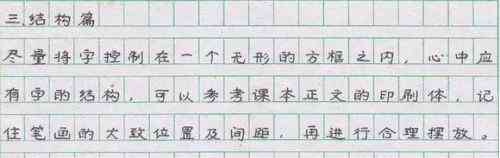 三.结构篇
尽量将字控制在一个无形的方框之内，心中应
有字的结构，可以参考课本正文的印刷体，记
住笔画的大致位置及间距，再进行合理摆放。